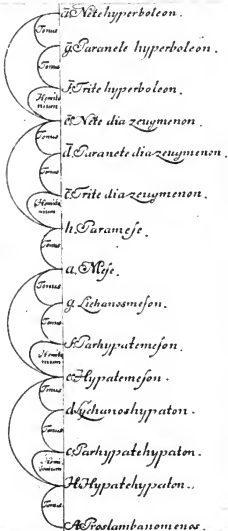 ā Nite hyperboleon.
Tonus
ḡ Paranete hyperboleon.
Tonus
f̄ Trite hyperboleon.
Hemitonium
ē Nete diazeugmenon.
Tonus
d̄ Paranete diazeugmenon.
Tonus
c̄ Trite diazeugmenon.
Hemitonium
h. Paramese.
Tonus
a. Mese.
Tonus
g Lichanosmeson.
Tonus
f Parhypatemeson.
Hemitonium
e Hypatemeson.
Tonus
d Lychanoshypaton.
Tonus
c Parhypatehypaton.
Hemitonium
H Hypatehypaton.
Tonus
A Proslambanomenos.